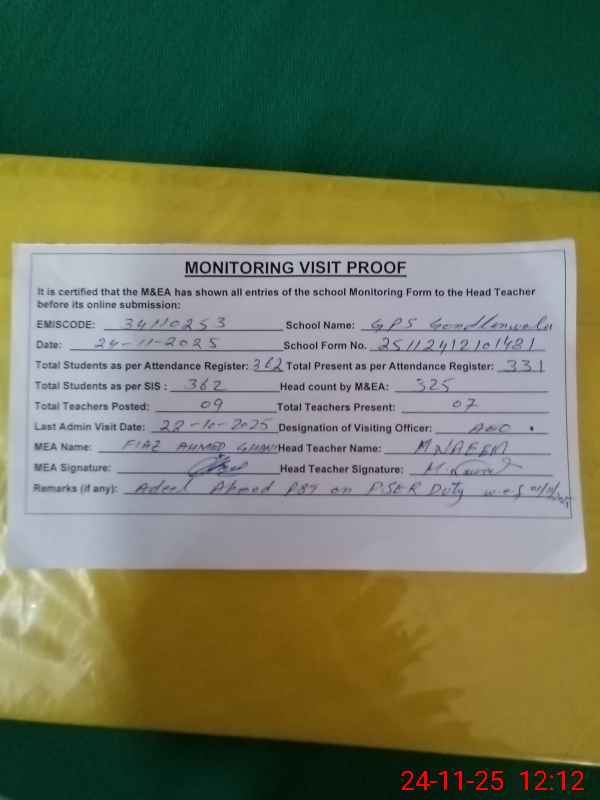 MONITORING VISIT PROOF
It is certified that the M&EA has shown all entries of the school Monitoring Form to the Head Teacher
before its online submission:
EMISCODE: 34110253 School Name: GPS Gondlanwala
Date: 24-11-2025 School Form No. 25112412101481
Total Students as per Attendance Register: 362 Total Present as per Attendance Register: 331
Total Students as per SIS : 362 Head count by M&EA: 325
Total Teachers Posted: 09 Total Teachers Present: 07
Last Admin Visit Date: 22-10-2025 Designation of Visiting Officer: AEO
MEA Name: FIAZ AHMED GHANI Head Teacher Name: M NAEEM
MEA Signature: Head Teacher Signature:
Remarks (if any): Adeel Ahmad PST on PSER Duty w.e.f
24-11-25 12:12